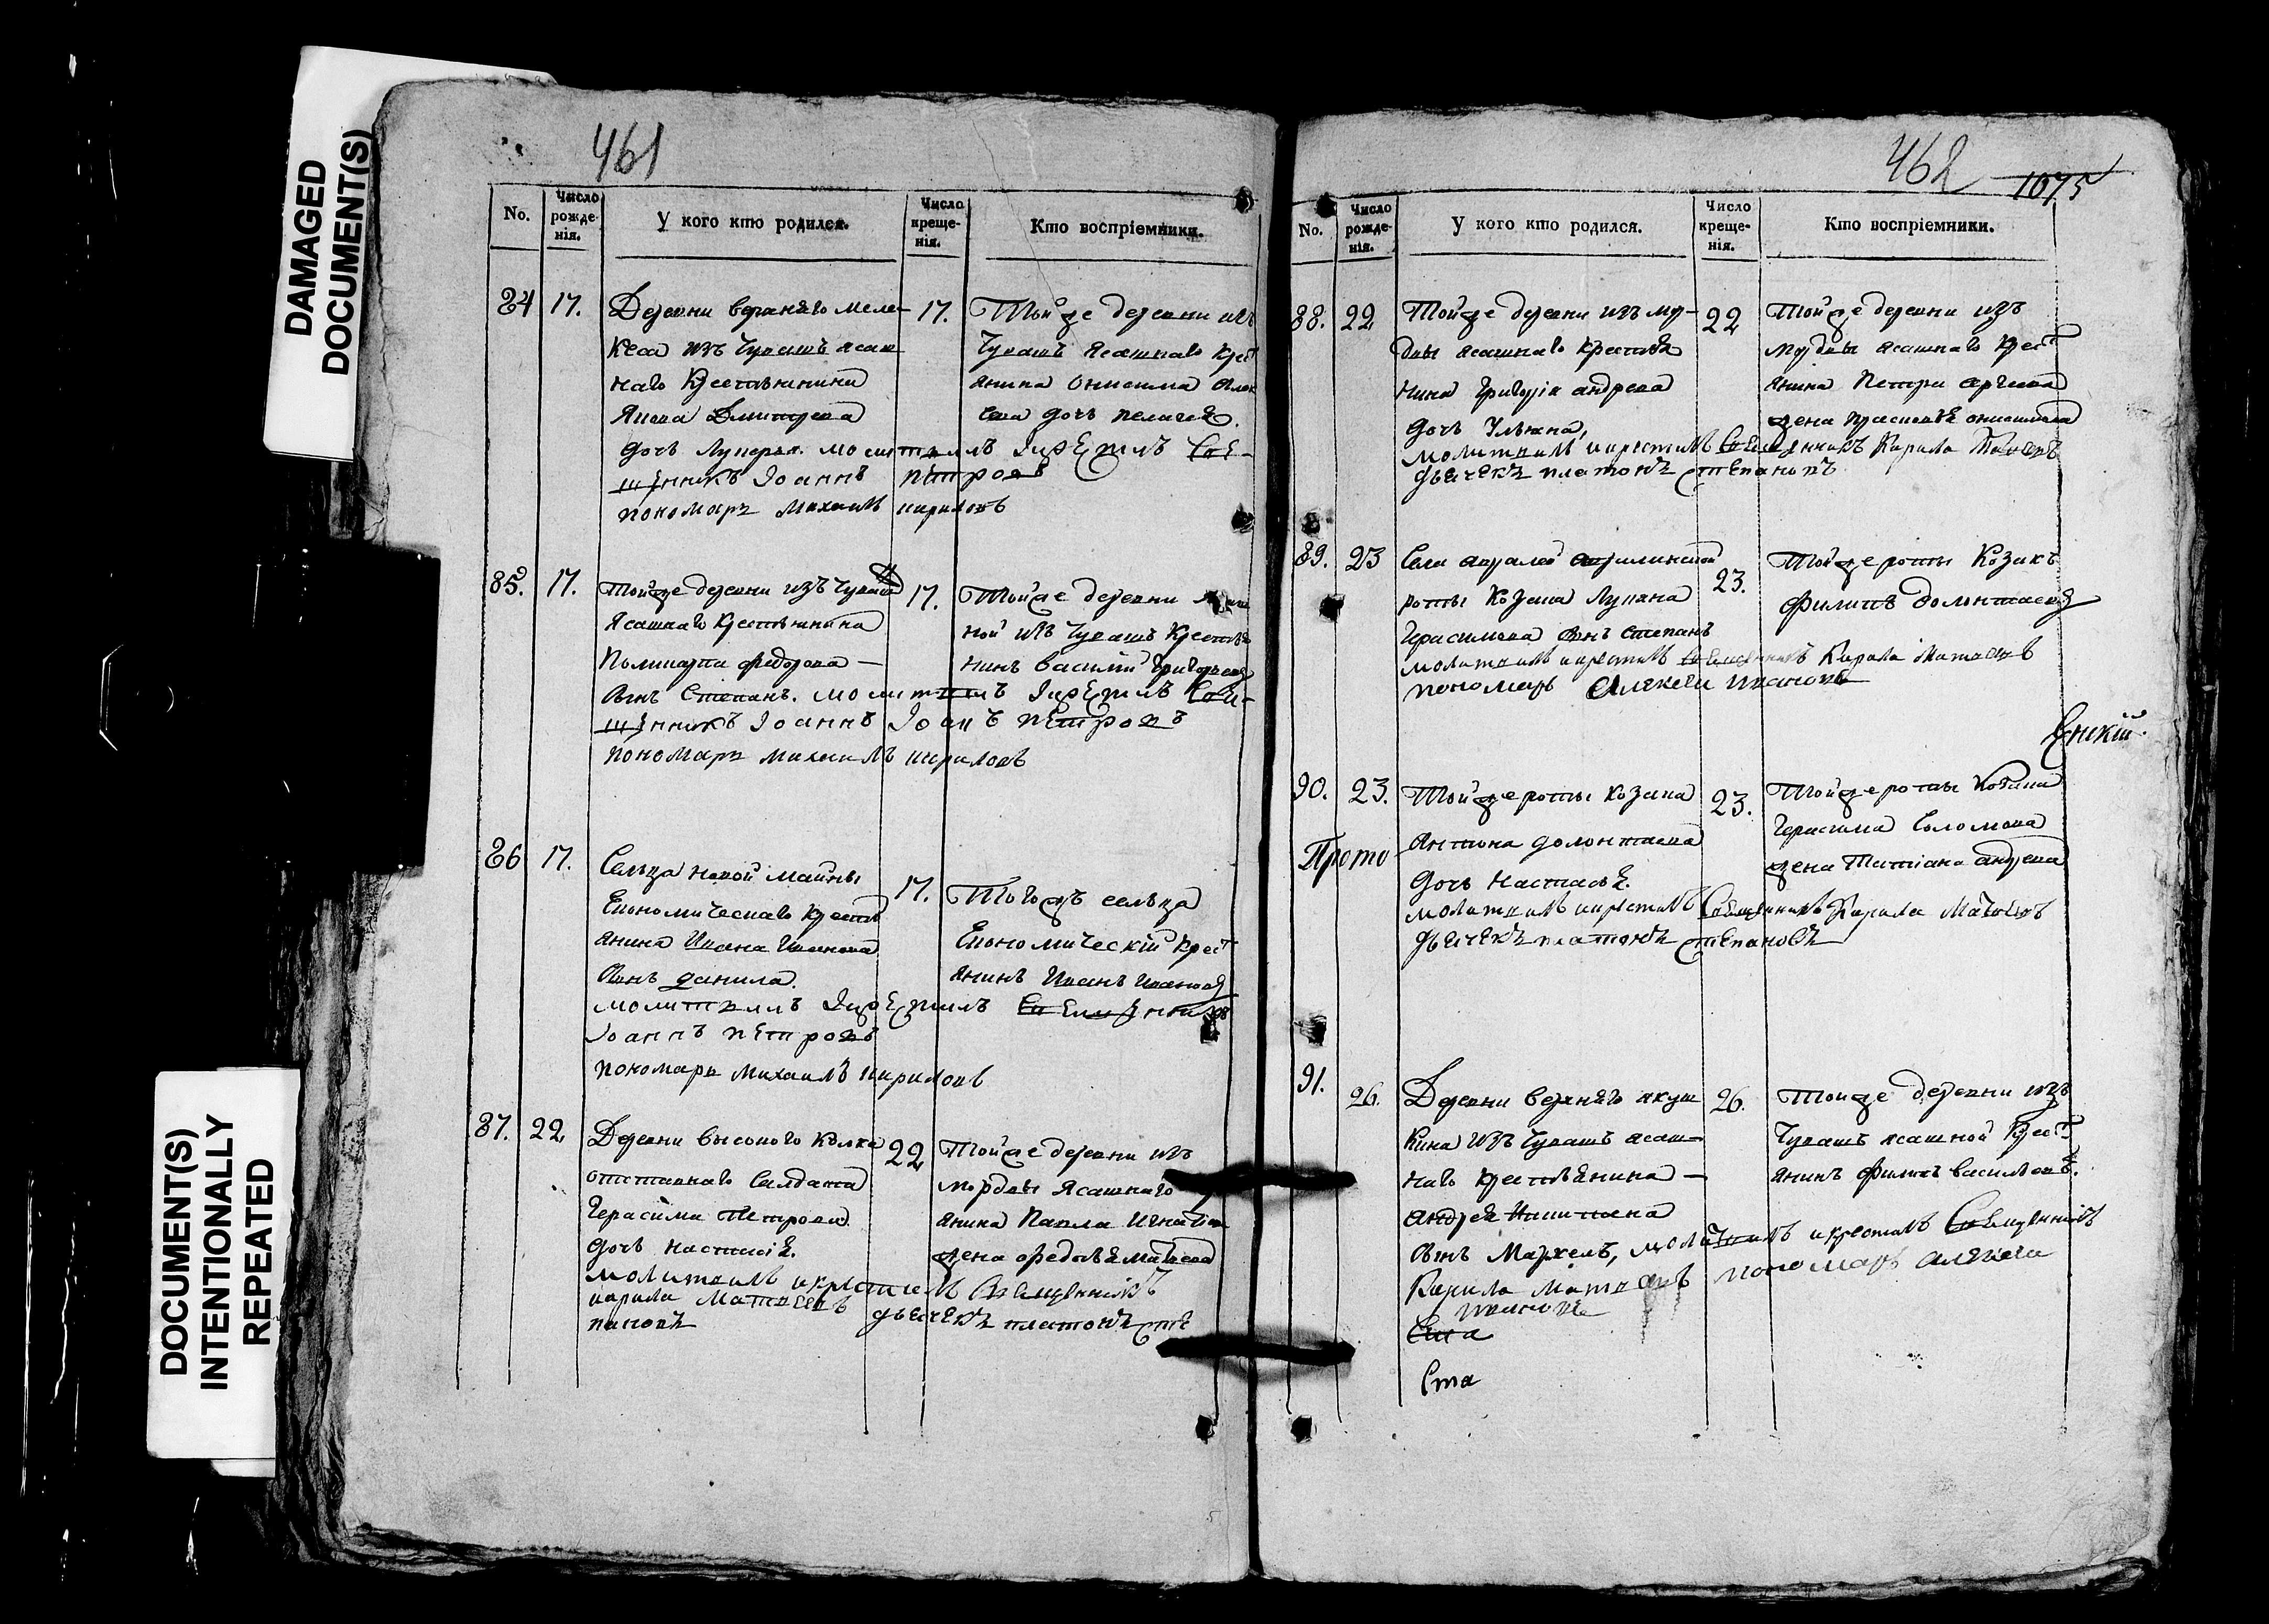 DAMAGED
DOCUMENT(S)
DOCUMENT(S)
INTENTIONALLY
REPEATED
461
No.
Число рожде- нія.
У кого кто родился.
Число креще- нія.
Кто воспріемники.
84 17. Деревни верхняго Меле-
кеса изъ Чувашъ ясаш
наго Крестьянина
Якова Дмитрева
дочь Лукерья. молитвилъ Jкрестилъ Свѣ-
щенникъ Jоаннъ Петровъ
пономарь Михаилъ кириловъ
17. Тойже деревни изъ
Чувашъ Ясашнаго Крест
янина Онисима
дочь пелагея.
85. 17. Тойже деревни изъ Чувашъ
Ясашнаго Крестьянина
Поликарпа федорова
сынъ Степанъ. молитвилъ Jкрестилъ Свѣ-
щенникъ Jоаннъ Jоанъ петровъ
пономарь михаилъ кириловъ
17. Тойже деревни
ной изъ Чувашъ Крестья
нинъ василій Григорьевъ
86 17. Сельца новой майны
Економическаго Крестъ
янина Ивана Иванова
сынъ данила.
молитвилъ Jкрестилъ Свѣщенникъ
Jоаннъ петровъ
пономарь михаилъ кириловъ
17. Тогожъ сельца
Економическій Крест
янинъ Иванъ Ивановъ
87. 22 Деревни высокого Колка
отставнаго Салдата
Герасима Петрова
дочь настасiя.
молитвилъ икрестилъ Свещенникъ
кирила Матвеевъ дьячекъ платонъ сте
пановъ
22 Тойже деревни изъ
мордвы Ясашнаго
янина Павла Игнатьева
жена федосья матвеева
462
1075
No.
Число рожде- нія.
У кого кто родился.
Число креще- нія.
Кто воспріемники.
88. 22 Тойже деревни изъ мор-
двы ясашнаго крестья
нина Григорія андрева
дочь Ульяна,
молитвилъ икрестилъ Свещенникъ Кирила Матвеевъ
дьячекъ платонъ степановъ
22 Тойже деревни изъ
мордвы ясашнаго Крест
янина Петра сергеева
жена прасковья онисимова
89. 23 Села
роты Козака Лукяна
Герасимова сынъ степанъ
молитвилъ икрестилъ Свещенникъ Кирила Матвеевъ
пономарь Алексеи ивановъ
23. Тойже роты Козакъ
филипъ долонтаевъ
90. 23. Тойже роты козака
Антона долонтаева
дочь настасья.
молитвилъ икрестилъ Свещенникъ Кирила Матвеевъ
дьячекъ платонъ степановъ
23. Тойже роты Козака
Герасима Соломова
жена Татiана андрева
Прото
91. 26. Деревни верхняго якуш
кина изъ Чувашъ ясаш-
наго крестьянина
андрея Никитина
сынъ Маркелъ, молитвилъ икрестилъ Свещенникъ
Кирила Матвеевъ пономарь алексеи
ивановъ
26. Тойже деревни изъ
Чувашъ ясашной Крест
янинъ филипъ васильевъ.
Ста